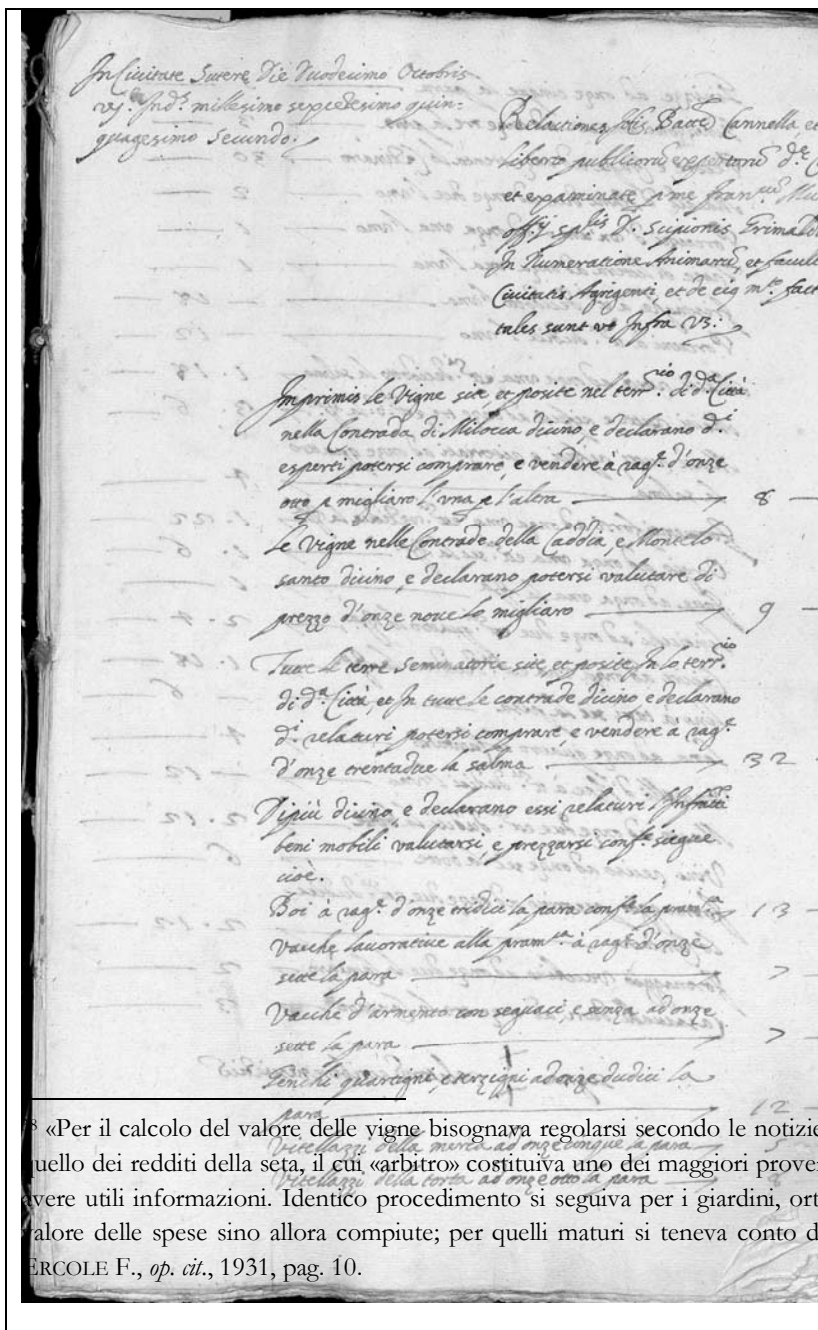 In Civitate Sutere Die Duodecimo Octobris
vj. Ind. millesimo septicesimo quin-
quagesimo Secundo
Relationes Bacc. Cannella et
Liberto publicorum expertorum d.e
et examinate p me Fran.
off.j sp.lis D. Scipionis Grimald
In Numeratione Animarum, et facult
Civitatis Agrigenti, et de eiq m.to fact
tales sunt ut Infra Vz:
Imprimis le Vigne site et posite nel terr.rio di d.a Città
nella Contrada di Milocca dicino, e declarano d.i
esperti potersi comprare, e vendere à rag.e d'onze
otto p migliaro l'una p l'altra 8
Le Vigne nelle Contrade della Caddia, e Montelo
santo dicino, e declarano potersi valutare di
prezzo d'onze nove lo migliaro 9
Tutte le terre Seminatorie site, et posite In lo terr.rio
di d.a Città, et In tutte le contrade dicino e declarano
d.i relaturi potersi comprare, e vendere à rag.e
d'onze trentadue la salma 32
Dipiù dicino, e declarano essi relaturi l'Infratti
beni mobili valutarsi, e prezzarsi conf.e siegue
cioè.
Boi à rag.e d'onze tridici la para conf.e la pram.ca 13
Vacche lavorative alla pram.ca à rag.e d'onze
sette la para 7
Vacche d'armento con seguaci, e senza ad onze
sette la para 7
Jenchi quartigni, e terzigni ad onze dudici la
para 12
Vitellazzi della merca ad onze cinque la para 5
Vitellazzi della torta ad onze otto la para 8
8 «Per il calcolo del valore delle vigne bisognava regolarsi secondo le notizie
quello dei redditi della seta, il cui «arbitro» costituiva uno dei maggiori prove
avere utili informazioni. Identico procedimento si seguiva per i giardini, ort
valore delle spese sino allora compiute; per quelli maturi si teneva conto d
ERCOLE F., op. cit., 1931, pag. 10.